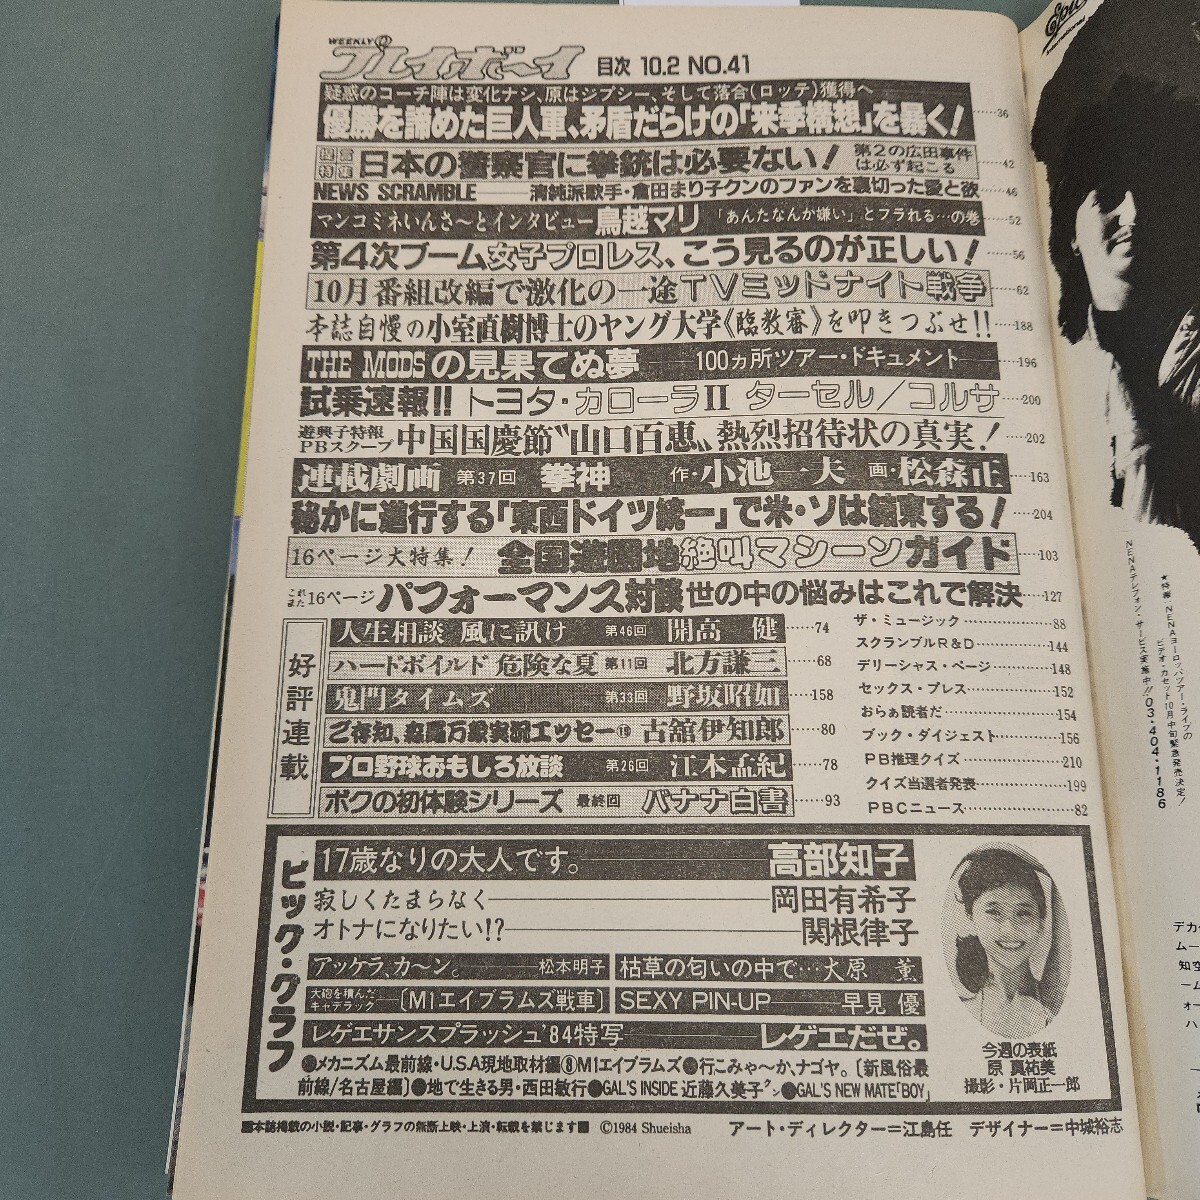 WEEKLY プレイボーイ 目次 10.2 NO.41
疑惑のコーチ陣は変化ナシ、原はジプシー、そして落合(ロッテ)獲得へ
優勝を諦めた巨人軍、矛盾だらけの「来季構想」を暴く! 36
提言特集 日本の警察官に拳銃は必要ない! 第2の広田事件は必ず起こる 42
NEWS SCRAMBLE 清純派歌手・倉田まり子クンのファンを裏切った愛と欲 46
マンコミネいんさ〜とインタビュー 鳥越マリ 「あんたなんか嫌い」とフラれる…の巻 52
第4次ブーム女子プロレス、こう見るのが正しい! 56
10月番組改編で激化の一途TVミッドナイト戦争 62
本誌自慢の小室直樹博士のヤング大学《臨教審》を叩きつぶせ!! 188
THE MODSの見果てぬ夢 100ヵ所ツアー・ドキュメント 196
試乗速報!! トヨタ・カローラII ターセル/コルサ 200
遊興子特報 PBスクープ 中国国慶節〝山口百恵〟熱烈招待状の真実! 202
連載劇画 第37回 拳神 作・小池一夫 画・松森正 163
秘かに進行する「東西ドイツ統一」で米・ソは結束する! 204
16ページ大特集! 全国遊園地絶叫マシーンガイド 103
これまた16ページ パフォーマンス対談 世の中の悩みはこれで解決 127
好評連載
人生相談 風に訊け 第46回 開高 健 74
ハードボイルド 危険な夏 第11回 北方謙三 68
鬼門タイムズ 第33回 野坂昭如 158
ご存知、森羅万象実況エッセー⑲ 古舘伊知郎 80
プロ野球おもしろ放談 第26回 江本孟紀 78
ボクの初体験シリーズ 最終回 バナナ白書 93
ザ・ミュージック 88
スクランブルR&D 144
デリーシャス・ページ 148
セックス・プレス 152
おらぁ読者だ 154
ブック・ダイジェスト 156
PB推理クイズ 210
クイズ当選者発表 199
PBCニュース 82
ビッグ・グラフ
17歳なりの大人です。 高部知子
寂しくたまらなく 岡田有希子
オトナになりたい!? 関根律子
アッケラ、カ〜ン。 松本明子
枯草の匂いの中で… 大原 薫
大砲を積んだキャデラック 〔M1エイブラムズ戦車〕
SEXY PIN-UP 早見 優
レゲエサンスプラッシュ'84特写 レゲエだぜ。
●メカニズム最前線・U.S.A現地取材編⑧M1エイブラムズ●行こみゃ〜か、ナゴヤ。〔新風俗最
前線/名古屋編〕●地で生きる男・西田敏行●GAL'S INSIDE 近藤久美子クン●GAL'S NEW MATE「BOY」
今週の表紙
原 真祐美
撮影・片岡正一郎
■本誌掲載の小説・記事・グラフの無断上映・上演・転載を禁じます■ ©1984 Shueisha アート・ディレクター=江島任 デザイナー=中城裕志
Epic
International
★特報・NENAヨーロッパツアー・ライブの
ビデオ・カセット10月中旬緊急発売決定!
NENAテレフォン・サービス実施中!! 03・404・1186
デカ
ムー
知空